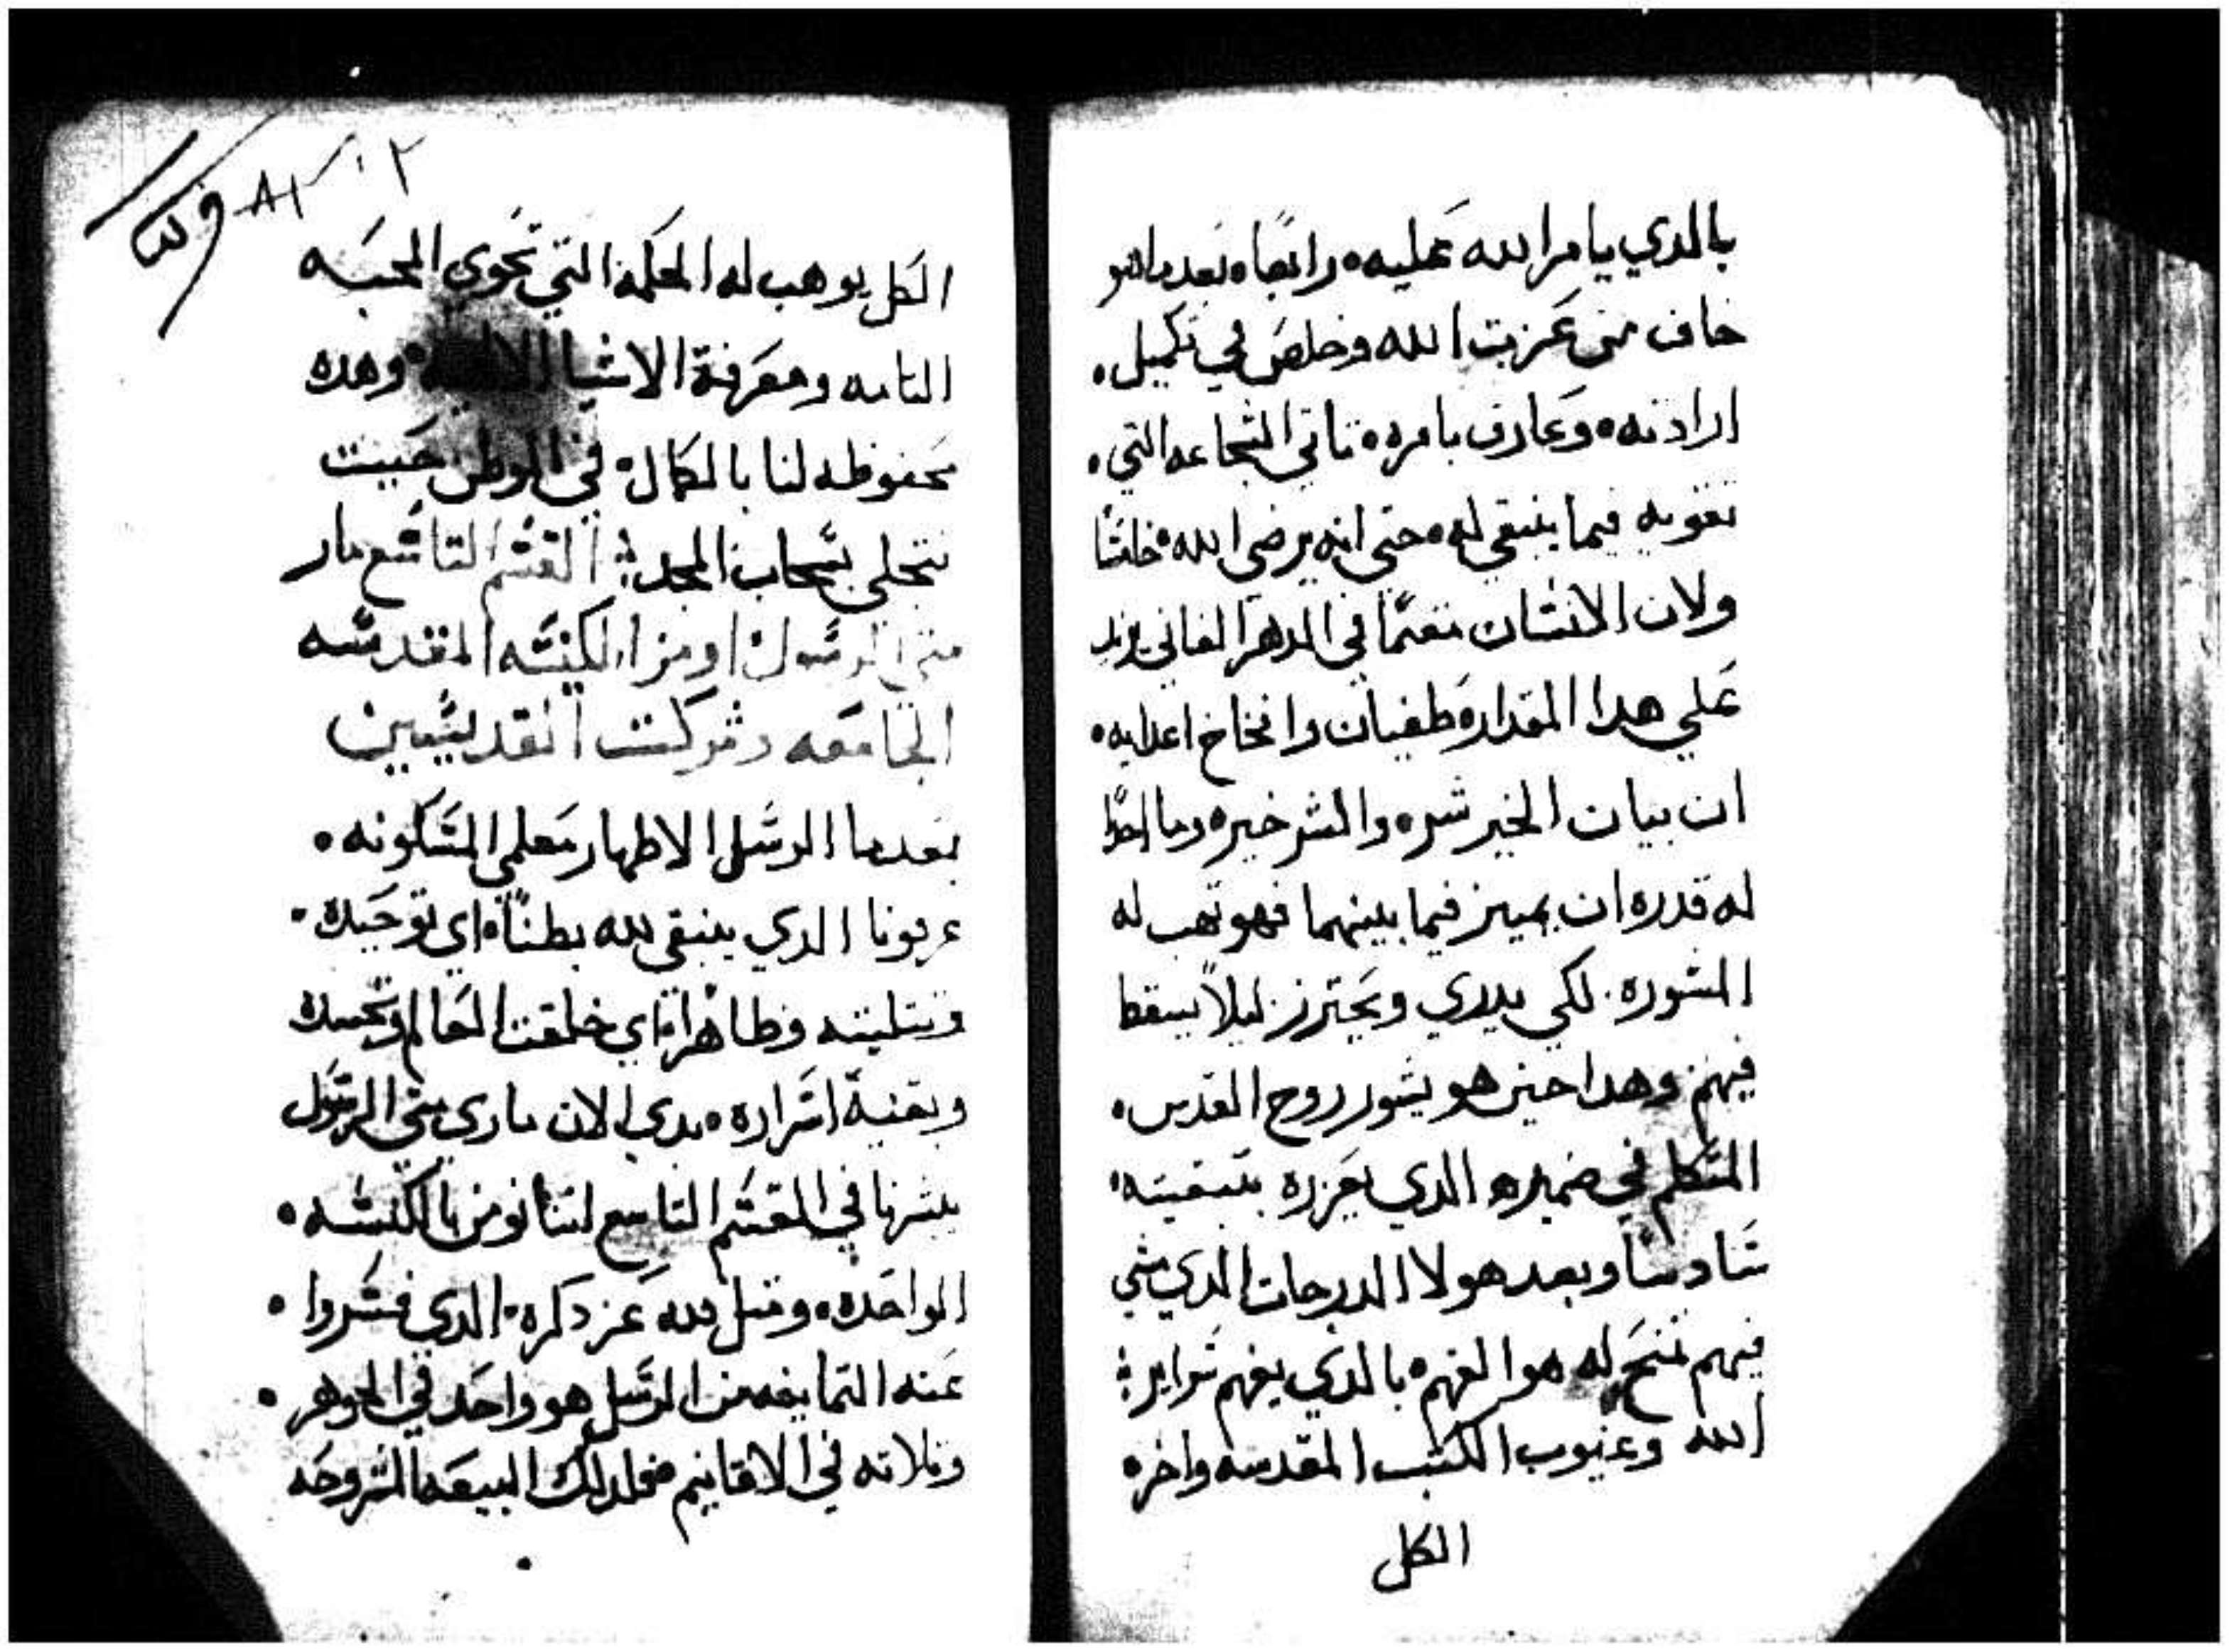 بالدي يامر الله عليه، رابعًا، بعدما هو
خاف من عزبت الله وخلص في تكميل،
ارادته، وعارف بامره، تاتي الشجاعه التي،
تقويه فيما ينبغي له، حتي انه يرضي الله، خامسًا
ولان الانسان في الدهر الفاني يزيد
علي هدا المقدار، طغيان وانخاخ اعدايه،
ان بيان الخير شر، والشر خير، وما
له قدره ان يميز فيما بينهما فهو تهب له
المشوره. لكي يدري ويحترز ليلاً يسقط
فيهم، وهدا حين هو يشور روح القدس،
المتكلم في ضميره، الدي يعزره بتبقيته،
سادسًا وبعد هولا الدرجات الدي مشي
فيهم تمنح له هو الفهم، بالدي يفهم سراير؛
الله وعيوب الكتب المقدسه واخره
الكل
٢
الكل يوهب له الحكمه التي تحوي المحبه
التامه ومعرفة الاشيا وهده
محفوظه لنا بالكمال، في الوطن حيت
نتجلي بسحاب المجد؛ القسم التاسع مار
متي الرسول اومن الكنسه المقدسه
الجامعه وشركت القديسيين
بعدما الرسل الاطهار معلمي المسكونه،
عربونا الدي ينبغي لله بطنًا، اي توحيده،
وتتليته وظاهرًا، اي خلقت العالم وتجسده
وبقية اسراره، بدي الان ماري متي الرسول
يبشرنا في القسم التاسع لننا نومن بالكنسه،
الواحده، ومتل لله عز دكره، الدي فسروا،
عنه التمايفه من الرسل هو واحد في الجوهر،
وتلاته في الاقانيم فكدلك البيعه المشروحه